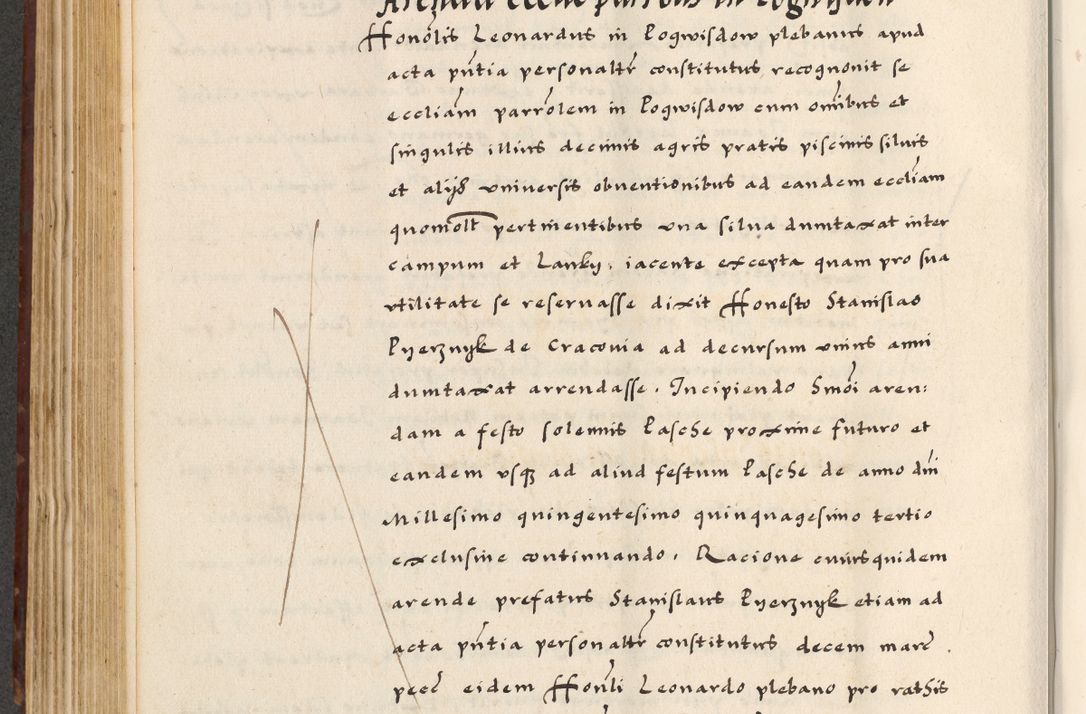 Arenda eccliae parrolis in Pogwisdow
Honolis Leonardus in Pogwisdow plebanus apud
acta pntia personaltr constitutus recognouit se
eccliam parrolem in Pogwisdow cum omibus et
singulis illius decimis agris pratis piscinis siluis
et alijs vniuersis obuentionibus ad eandem eccliam
quomolt pertinentibus vna silua dumtaxat inter
campum et Lanky, iacente excepta quam pro sua
vtilitate se reseruasse dixit Honesto Stanislao
Pyerznyk de Cracouia ad decursum vnius anni
dumtaxat arrendasse. Incipiendo Smoi aren:
dam a festo solennis Pasche proxime futuro et
eandem vsq ad aliud festum Pasche de anno dni
Millesimo quingentesimo quinquagesimo tertio
exclusiue continuando. Racione cuiusquidem
arende prefatus Stanislaus Pyerznyk etiam ad
acta pntia personaltr constitutus decem marc
pecc eidem Honli Leonardo plebano pro rathis